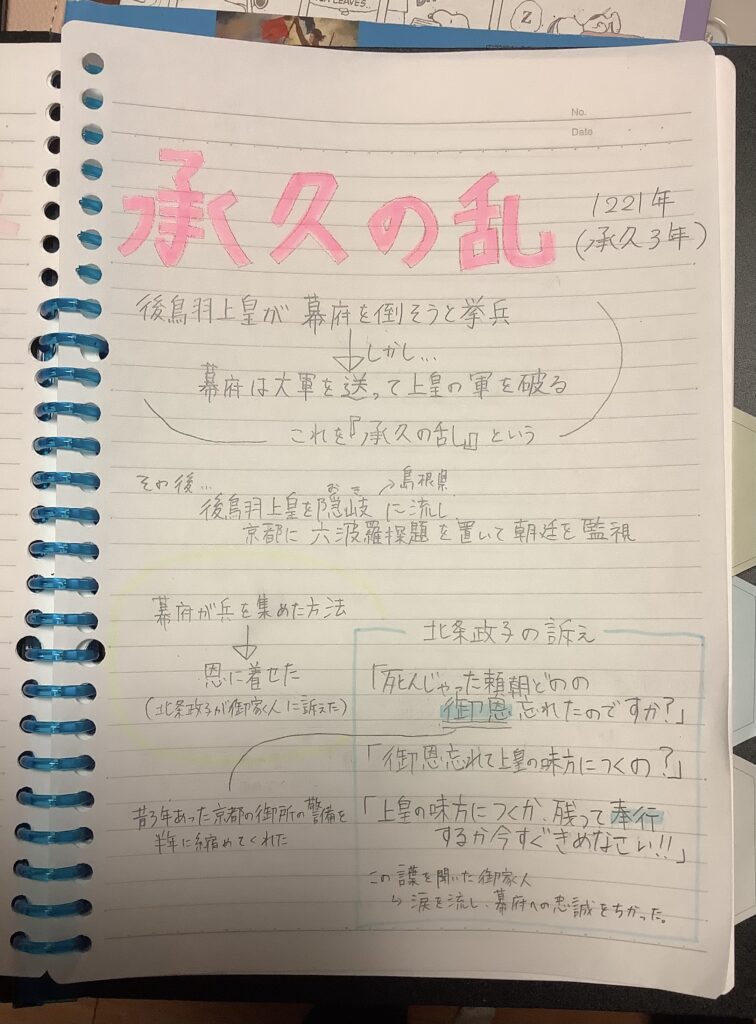 Z
No.
Date
承久の乱
1221年
(承久3年)
後鳥羽上皇が 幕府を倒そうと挙兵
しかし…
幕府は大軍を送って上皇の軍を破る
これを『承久の乱』という
その後…
おき
島根県
後鳥羽上皇を隠岐に流し
京都に 六波羅探題を置いて朝廷を監視
幕府が兵を集めた方法
恩に着せた
(北条政子が御家人に訴えた)
昔3年あった京都の御所の警備を
半年に縮めてくれた
北条政子の訴え
「死んじゃった頼朝どのの
御恩忘れたのですか?」
「御恩忘れて上皇の味方につくの?」
「上皇の味方につくか、残って奉行
するか今すぐきめなさい!!」
この 言葉を聞いた御家人
涙を流し、幕府への忠誠をちかった。